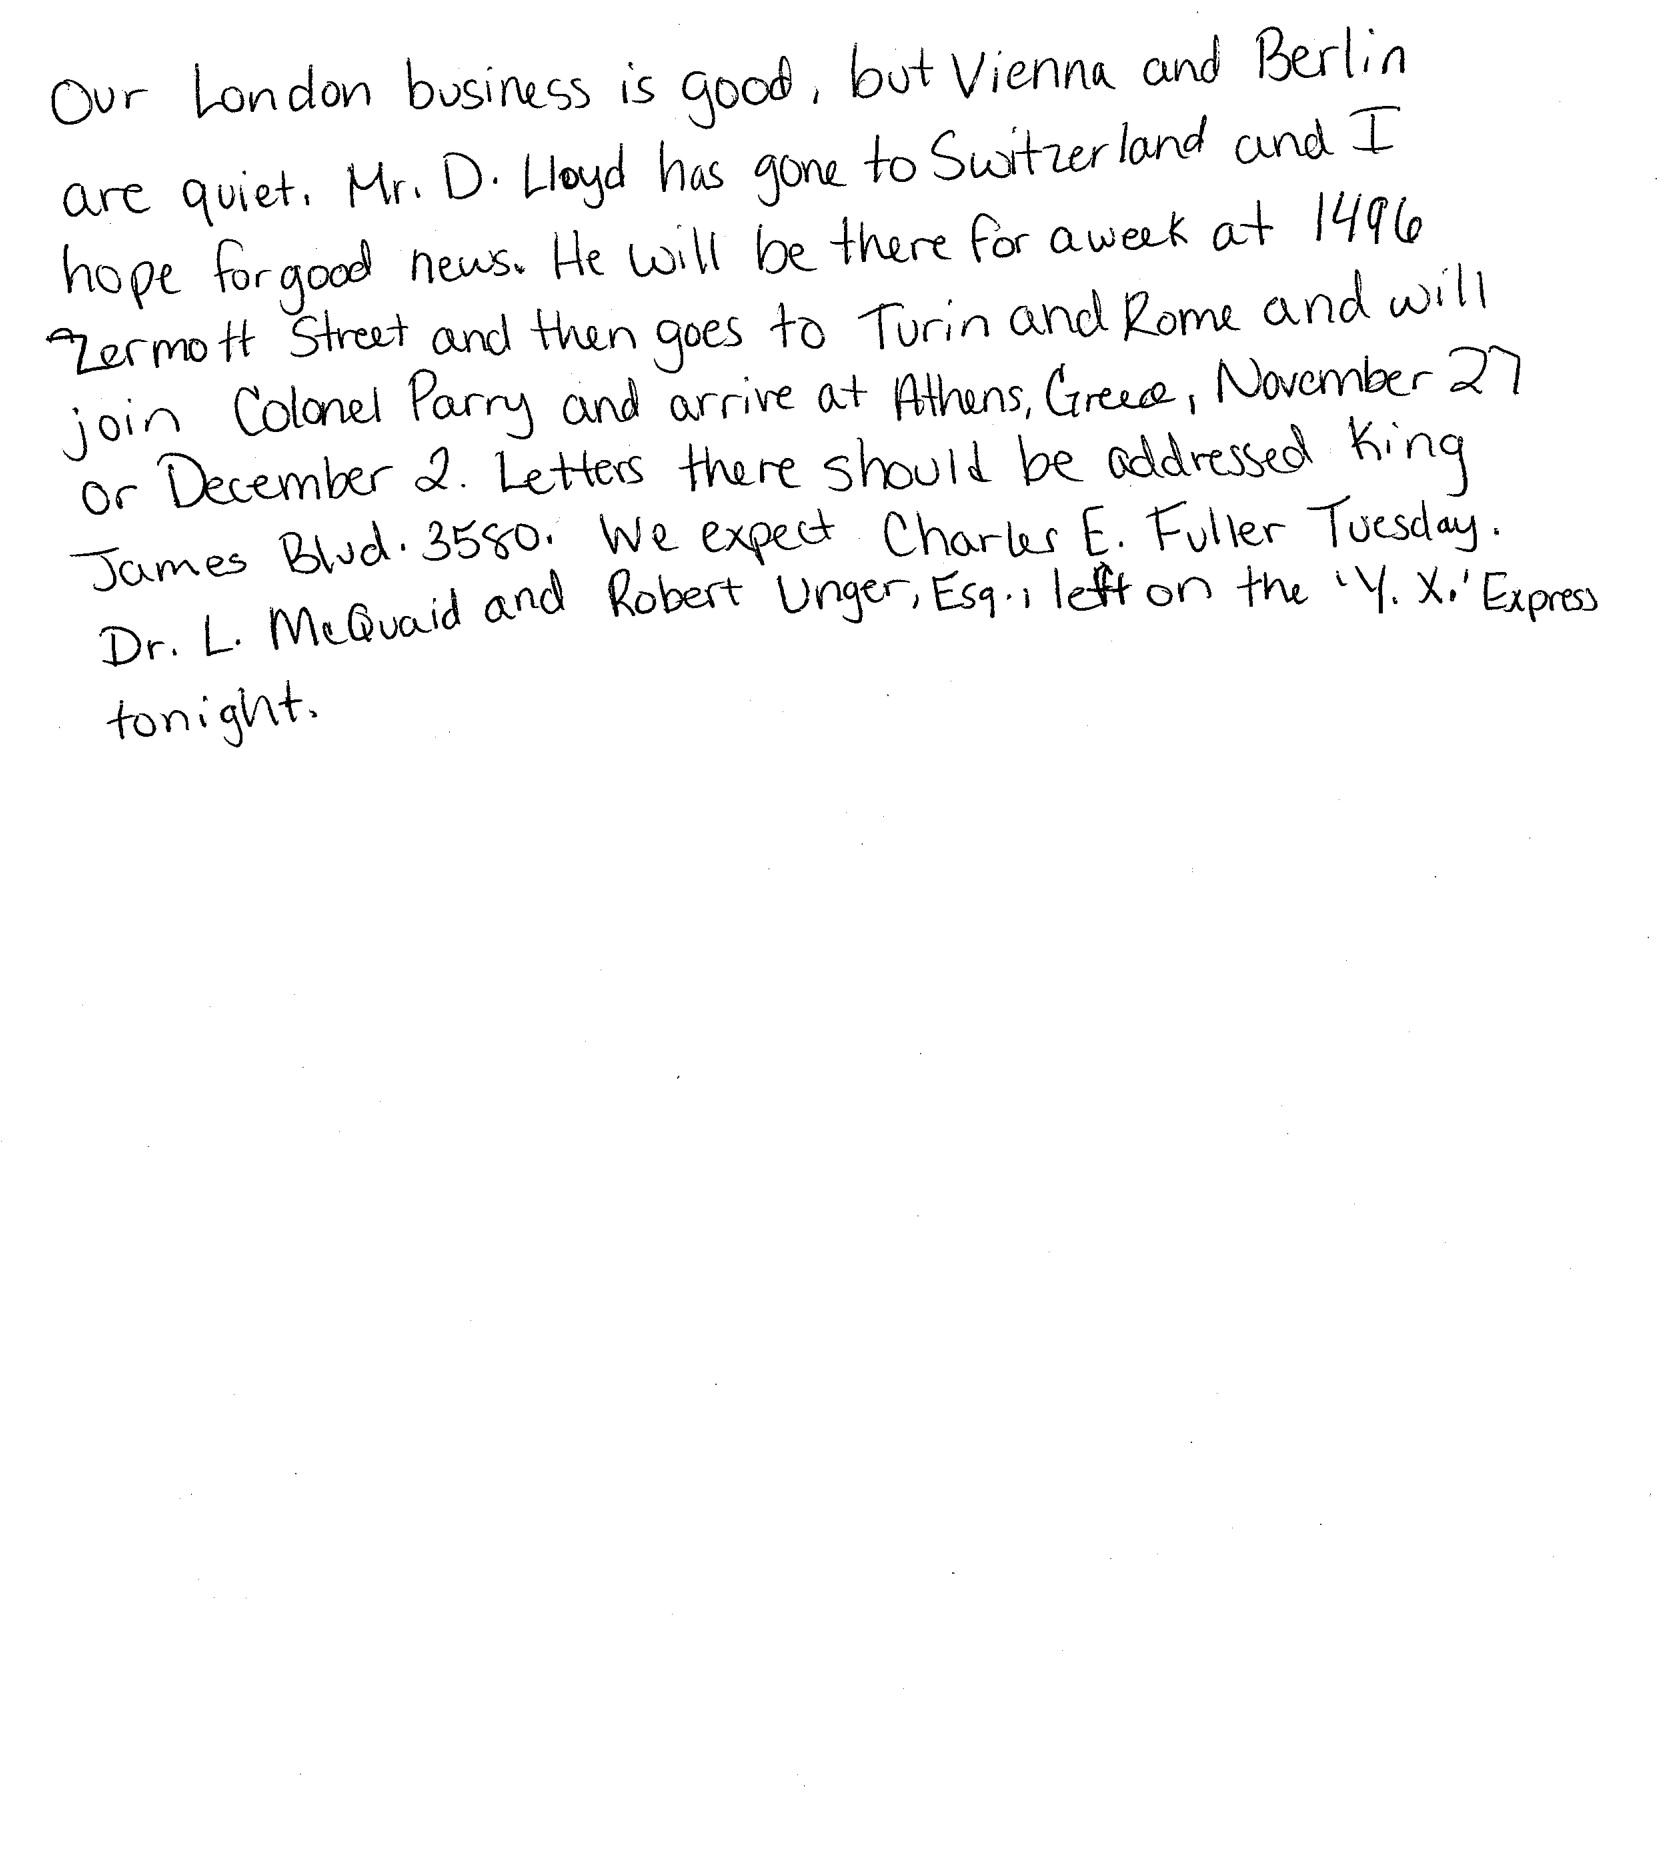 Our London business is good, but Vienna and Berlin
are quiet. Mr. D. Lloyd has gone to Switzerland and I
hope for good news. He will be there for a week at 1496
Zermott Street and then goes to Turin and Rome and will
join Colonel Parry and arrive at Athens, Greece, November 27
or December 2. Letters there should be addressed King
James Blvd. 3580. We expect Charles E. Fuller Tuesday.
Dr. L. McQuaid and Robert Unger, Esq., left on the 'Y. X.' Express
tonight.